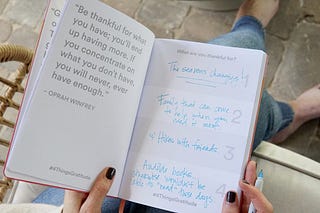 "Be thankful for what
you have; you'll end
up having more. If
you concentrate on
what you don't have,
you will never, ever
have enough."
- OPRAH WINFREY
#4ThingsGratitude
What are you thankful for?
The seasons changing
1
Family that can come
to help when you
need it most
2
Hikes with friends
3
Audible books,
otherwise wouldn't be
able to "read" these days
4
#4ThingsGratitude